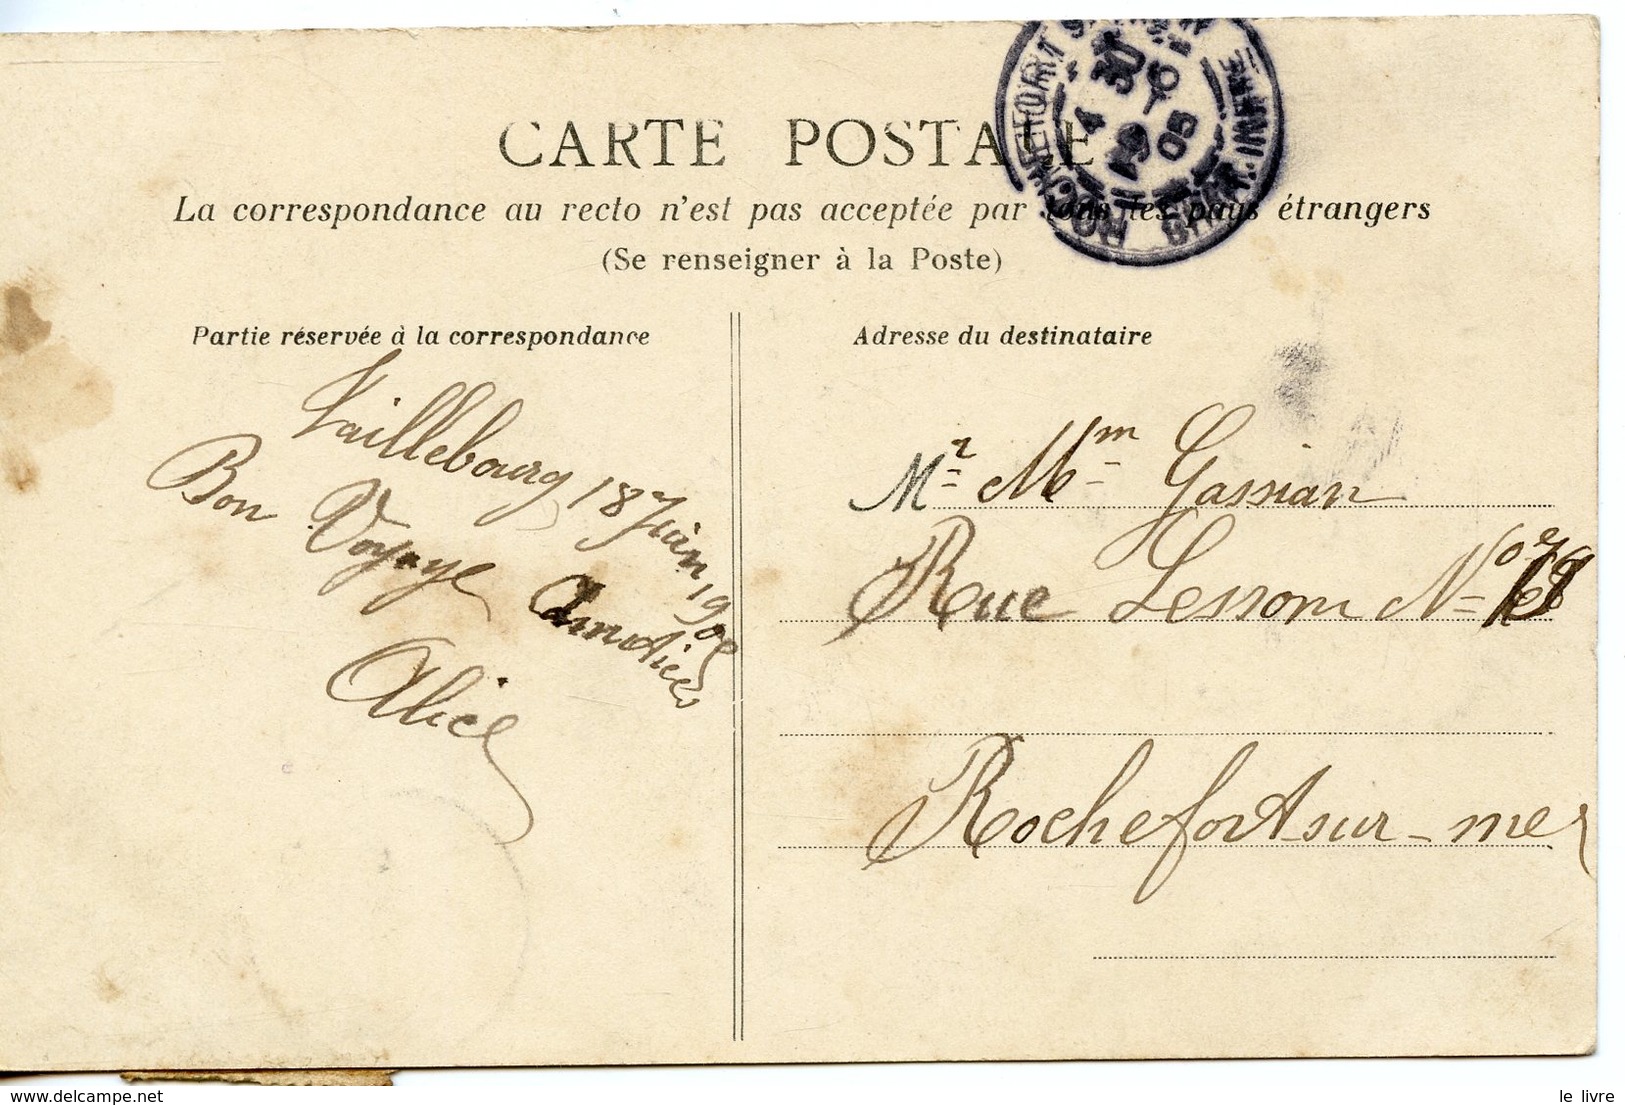 CARTE POSTALE
La correspondance au recto n'est pas acceptée par tous les pays étrangers
(Se renseigner à la Poste)
Partie réservée à la correspondance
Taillebourg 18 Juin 1905
Bon Voyage Amitiés
Alice
Adresse du destinataire
Mr Mm Gassian
Rue Lesson No
Rochefort-sur-mer
ROCHEFORT S
4 30
19 6
05
delcampe.net
le livre